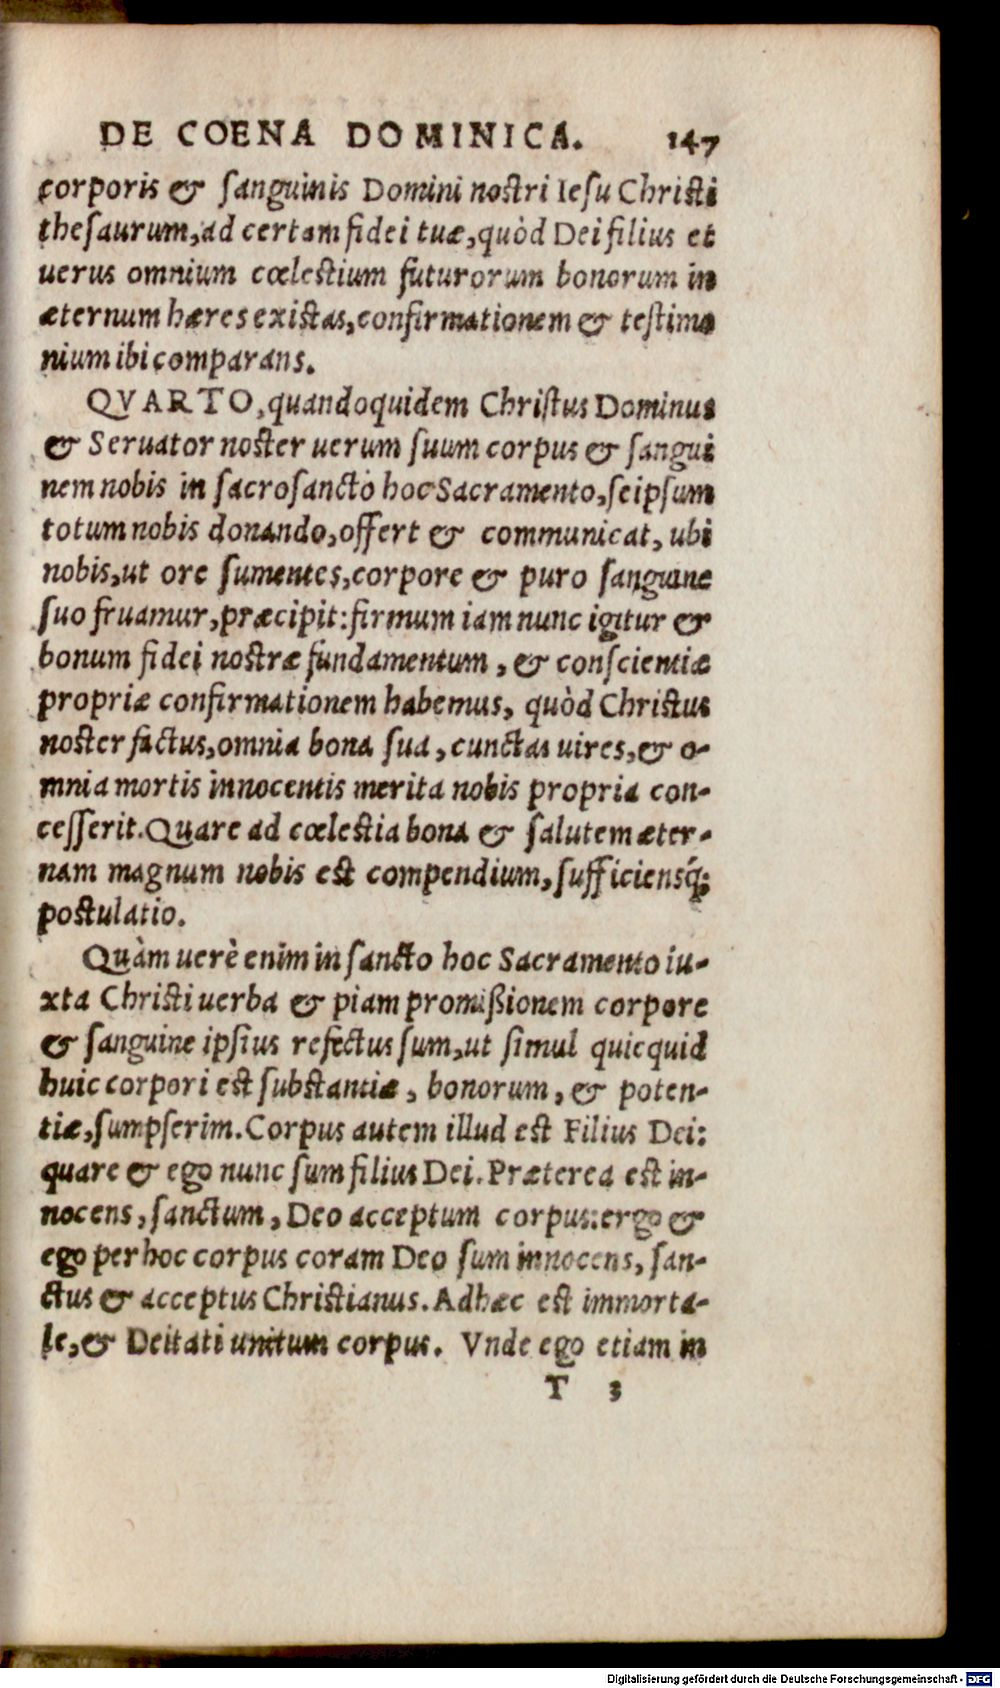 DE COENA DOMINICA. 147
corporis & sanguinis Domini nostri Iesu Christi
thesaurum, ad certam fidei tuæ, quòd Dei filius et
uerus omnium cœlestium futurorum bonorum in
æternum hæres existas, confirmationem & testimo
nium ibi comparans.
QVARTO, quandoquidem Christus Dominus
& Seruator noster uerum suum corpus & sangui
nem nobis in sacrosancto hoc Sacramento, seipsum
totum nobis donando, offert & communicat, ubi
nobis, ut ore sumentes, corpore & puro sanguine
suo fruamur, præcipit: firmum iam nunc igitur &
bonum fidei nostræ fundamentum, & conscientiæ
propriæ confirmationem habemus, quòd Christus
noster factus, omnia bona sua, cunctas uires, & o-
mnia mortis innocentis merita nobis propria con-
cesserit. Quare ad cœlestia bona & salutem æter-
nam magnum nobis est compendium, sufficiensq́;
postulatio.
Quàm uerè enim in sancto hoc Sacramento iu-
xta Christi uerba & piam promißionem corpore
& sanguine ipsius refectus sum, ut simul quicquid
huic corpori est substantiæ, bonorum, & poten-
tiæ, sumpserim. Corpus autem illud est Filius Dei:
quare & ego nunc sum filius Dei. Præterea est in-
nocens, sanctum, Deo acceptum corpus: ergo &
ego per hoc corpus coram Deo sum innocens, san-
ctus & acceptus Christianus. Adhæc est immorta-
le, & Deitati unitum corpus. Vnde ego etiam in
T 3
Digitalisierung gefördert durch die Deutsche Forschungsgemeinschaft - DFG